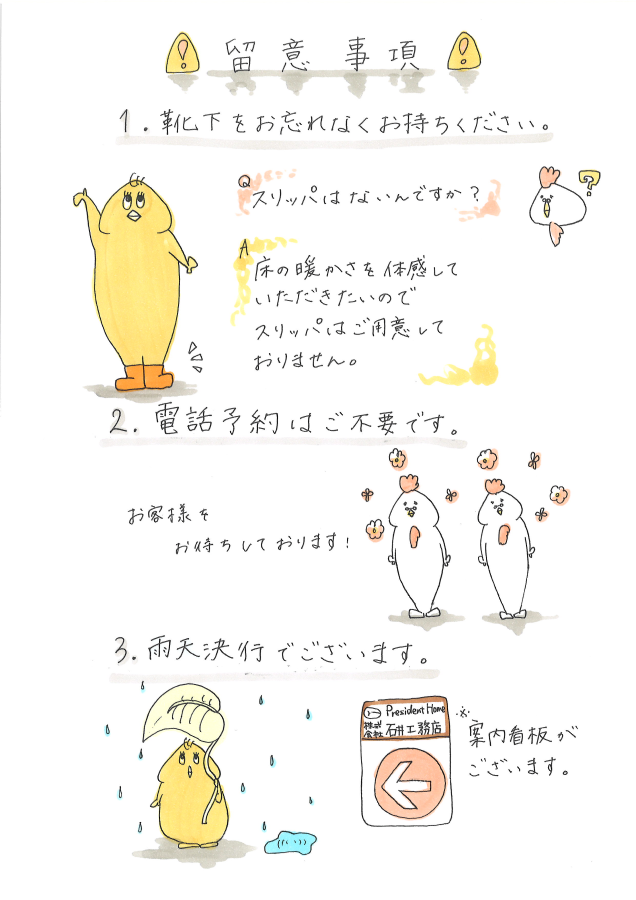 留意事項
1.靴下をお忘れなくお持ちください。
Q スリッパはないんですか?
?
A 床の暖かさを体感して
いただきたいので
スリッパはご用意して
おりません。
2.電話予約はご不要です。
お客様を
お待ちしております!
3.雨天決行でございます。
President Home
株式会社 石井工務店
※案内看板が
ございます。